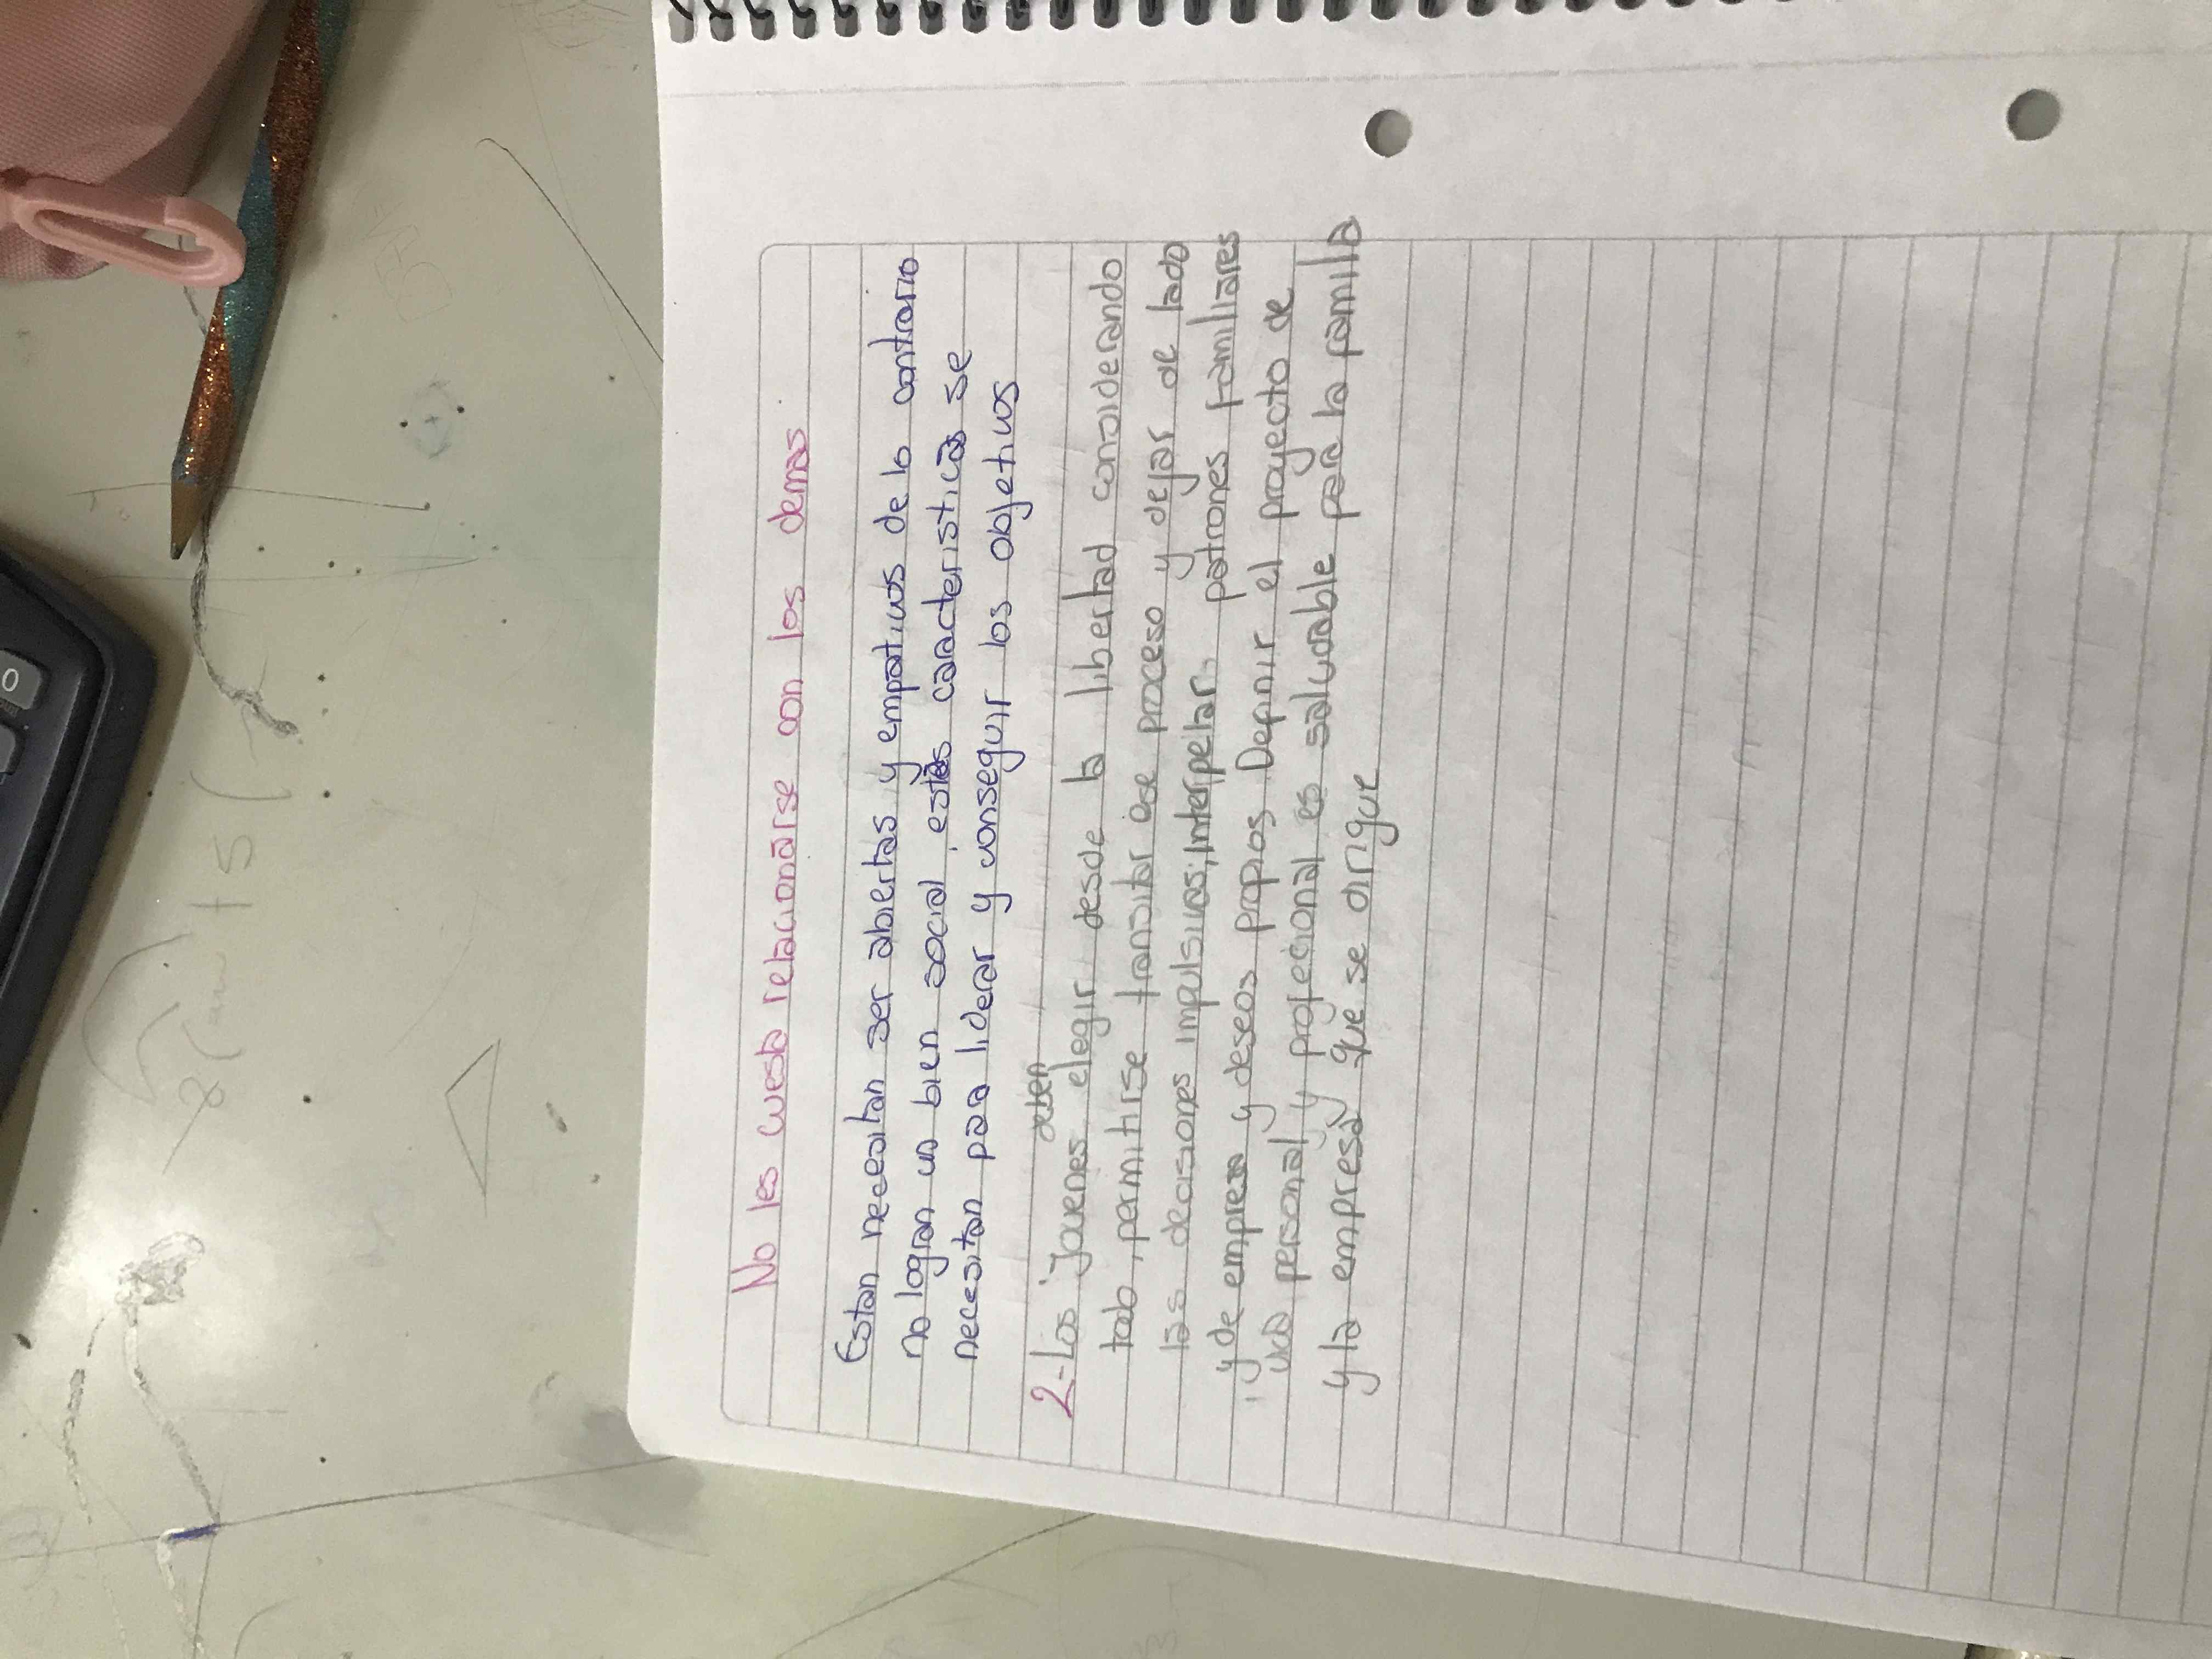 No les cuesta relacionarse con los demas
Estan necesitan ser abiertas y empativos de lo contrario
no logran un bien social, estas caracteristicas se
necesitan para liderar y conseguir los objetivos
deben
2-Los jovenes elegir desde la libertad considerando
todo, permitirse transitar ese proceso y dejar de lado
las decisiones impulsivas; interpelar patrones familiares
y de empresa y deseos propios. Definir el proyecto de
vida personal y profecional es saludable para la familia
y la empresa que se dirigue
0